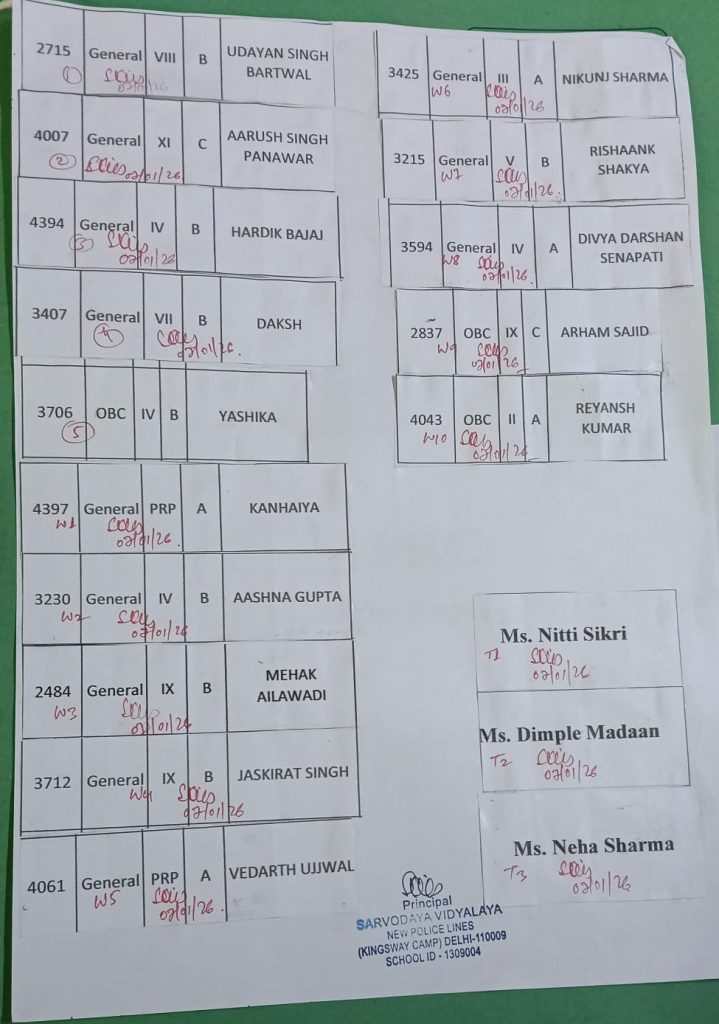 2715 General VIII B UDAYAN SINGH
BARTWAL
1 02/01/26
4007 General XI C AARUSH SINGH
PANAWAR
2 02/01/26
4394 General IV B HARDIK BAJAJ
3 02/01/26
3407 General VII B DAKSH
4 02/01/26
3706 OBC IV B YASHIKA
5
4397 General PRP A KANHAIYA
W1 02/01/26.
3230 General IV B AASHNA GUPTA
W2 02/01/26
2484 General IX B MEHAK
AILAWADI
W3 02/01/26
3712 General IX B JASKIRAT SINGH
W4 02/01/26
4061 General PRP A VEDARTH UJJWAL
W5 02/01/26.
3425 General III A NIKUNJ SHARMA
W6 02/01/26
3215 General V B RISHAANK
SHAKYA
W7 02/01/26.
3594 General IV A DIVYA DARSHAN
SENAPATI
W8 02/01/26.
2837 OBC IX C ARHAM SAJID
W9 02/01/26.
4043 OBC II A REYANSH
KUMAR
W10 02/01/26
Ms. Nitti Sikri
T1 02/01/26
Ms. Dimple Madaan
T2 02/01/26
Ms. Neha Sharma
T3 02/01/26
Principal
SARVODAYA VIDYALAYA
NEW POLICE LINES
(KINGSWAY CAMP) DELHI-110009
SCHOOL ID - 1309004